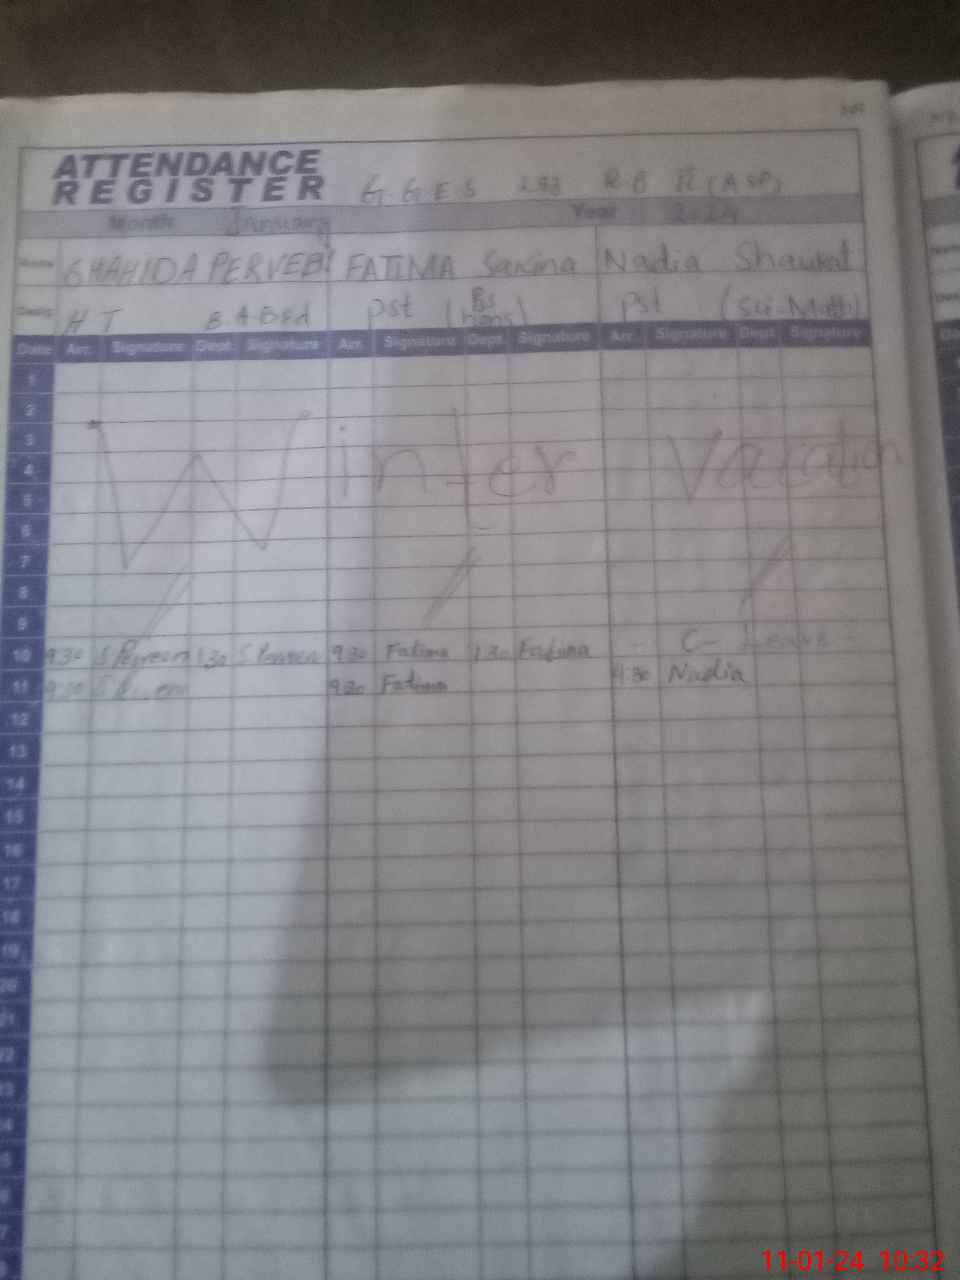 ATTENDANCE
REGISTER G.G.E.S R.B (ASP)
Month January Year 2024
SHAHIDA PERVEEN FATIMA Sakina Nadia Shaukat
H T B.A-B.Ed pst (Bs hons) pst (Sci-Math)
Date Arr. Signature Dept. Signature Arr. Signature Dept. Signature Arr. Signature Dept. Signature
1
2
3
Winter Vacation
4
5
6
7
8
9
10 9:30 S Perveen 1:30 S Perveen 9:30 Fatima 1:30 Fatima - C- Leave -
11 9:30 9:30 Fatima Nadia
12
13
14
15
16
17
18
19
20
21
22
23
11-01-24 10:32